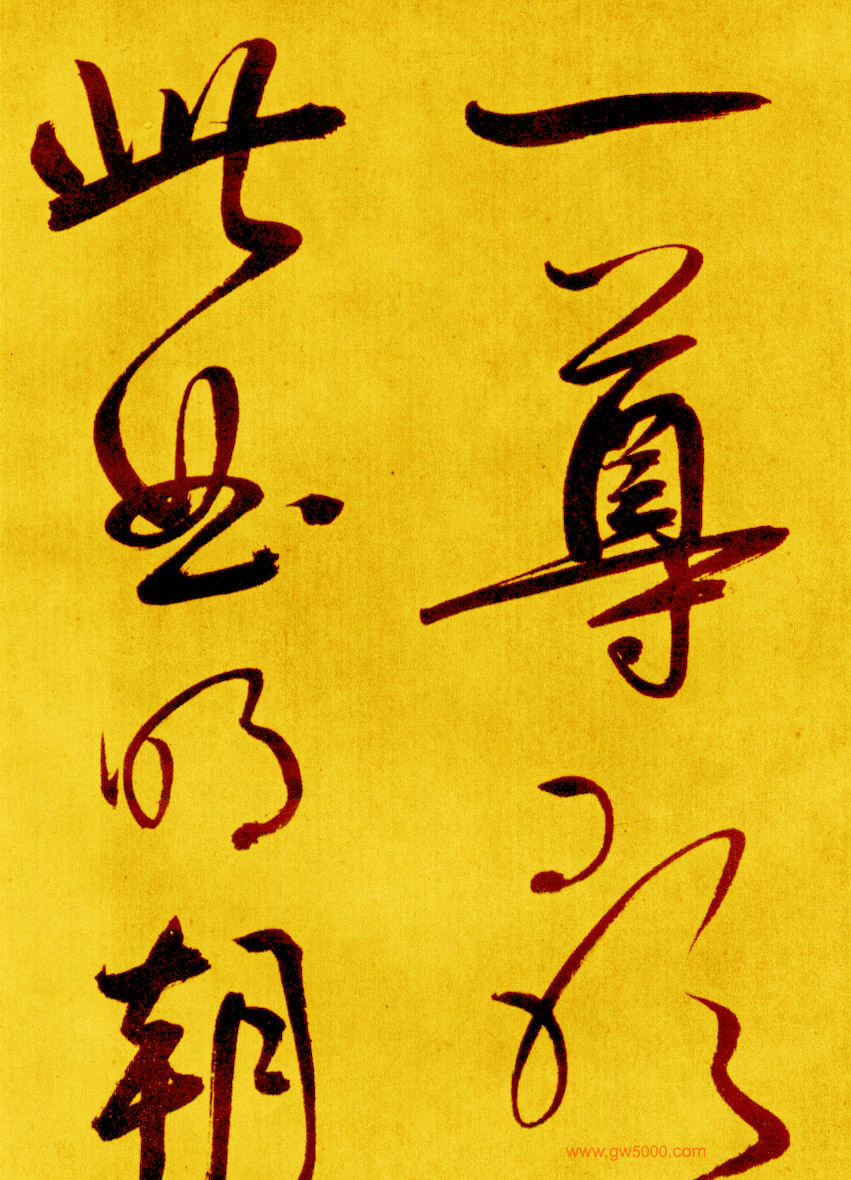 一尊
此明朝
www.gw5000.com